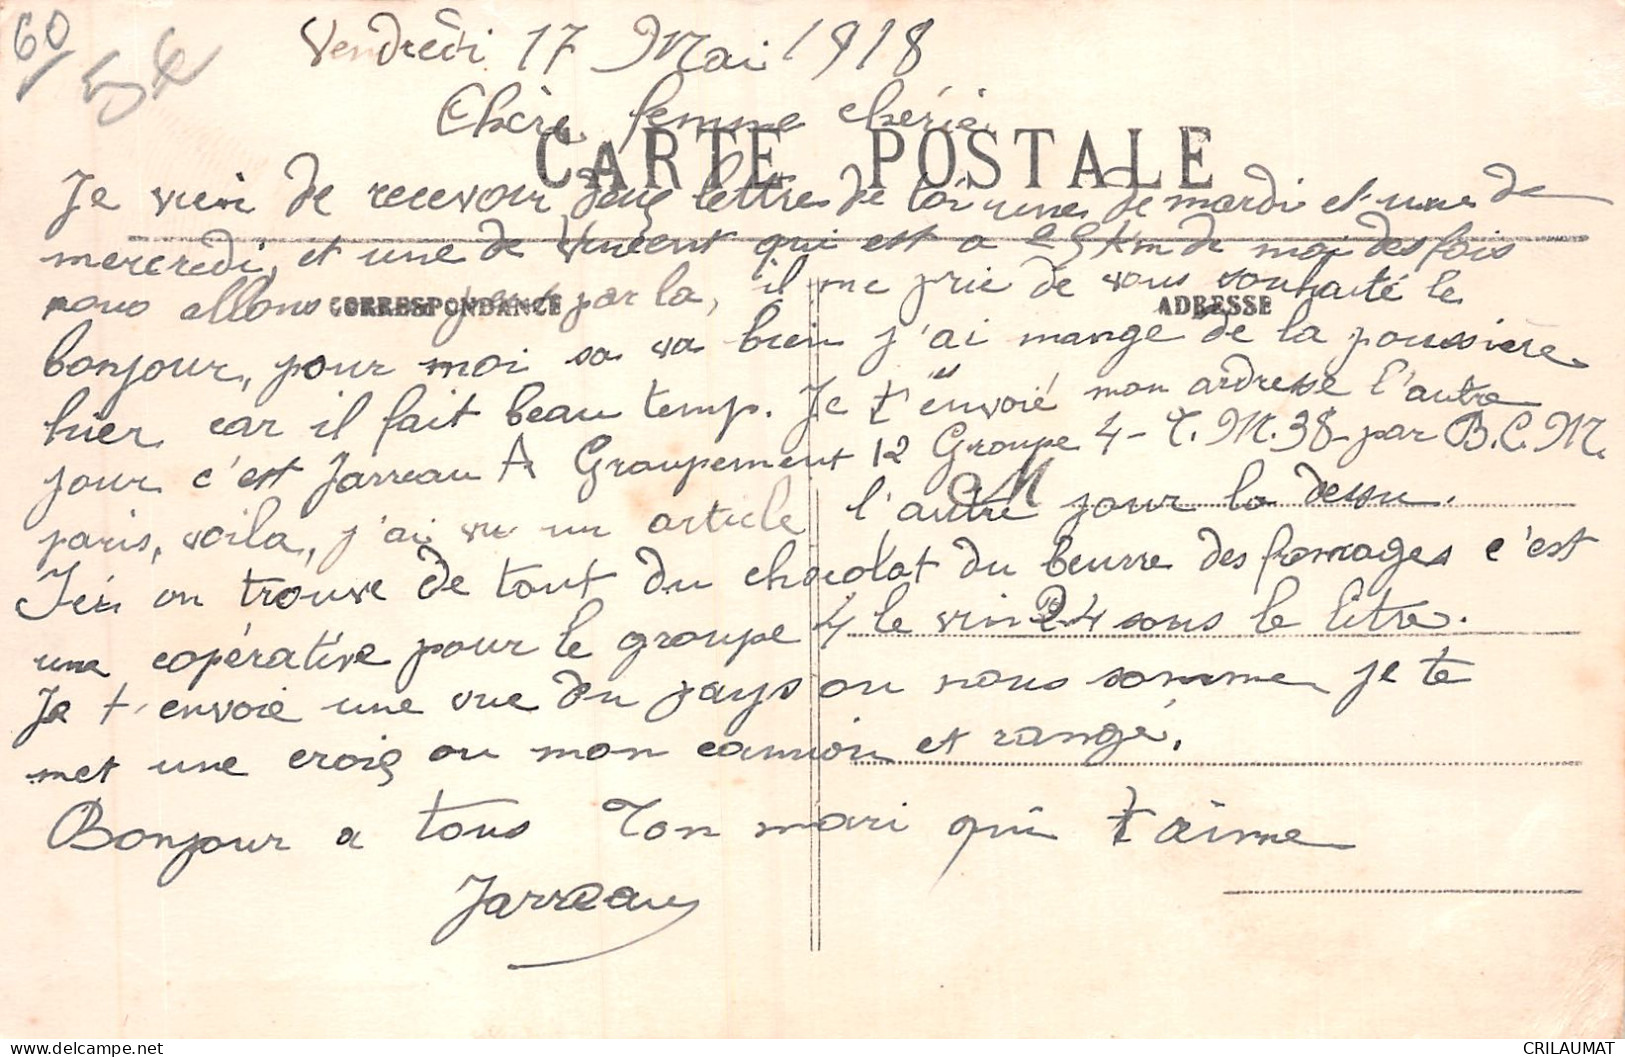 60
Vendredi 17 Mai 1918
Chère femme chérie
CARTE POSTALE
Je vien de recevoir deux lettres de toi une de mardi et une de
mercredi, et une de Vincent qui est a 25 Km de moi des fois
nous allons par la, il me prie de vous souhaité le
CORRESPONDANCE
ADRESSE
bonjour, pour moi sa va bien j'ai mangé de la poussière
hier car il fait beau temp. Je t'envoié mon ardresse l'autre
jour c'est Jarreau A Groupement 12 Groupe 4 - T.M. 38 - par B.C.M.
M
paris, voila, j'ai vu un article l'autre jour la dessu.
Ici on trouve de tout du chocolat du beurre des fromages c'est
une copérative pour le groupe 4 le vin 24 sous le litre.
Je t'envoie une vue du pays ou nous somme je te
met une croix ou mon camion et rangé.
Bonjour a tous Ton mari qui t'aime
Jarreau
CRILAUMAT
delcampe.net